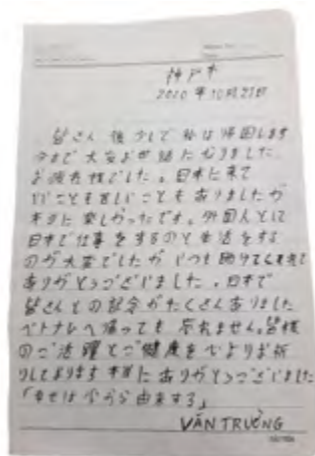 神戸市
2020年10月27日
皆さん 後少しで私は帰国します
今まで大変お世話になりました
お疲れ様でした。日本に来て
いいことも苦しいこともありましたが
本当に楽しかったです。外国人として
日本で仕事をするのと生活をする
のが大変でしたがいつも助けてくれて
ありがとうございました。日本で
皆さんとの記念がたくさんありました
ベトナムへ帰っても忘れません。皆様
のご活躍とご健康を心よりお祈
りしております 本当にありがとうございました
「幸せは今から由来する」
VĂN TRƯỜNG